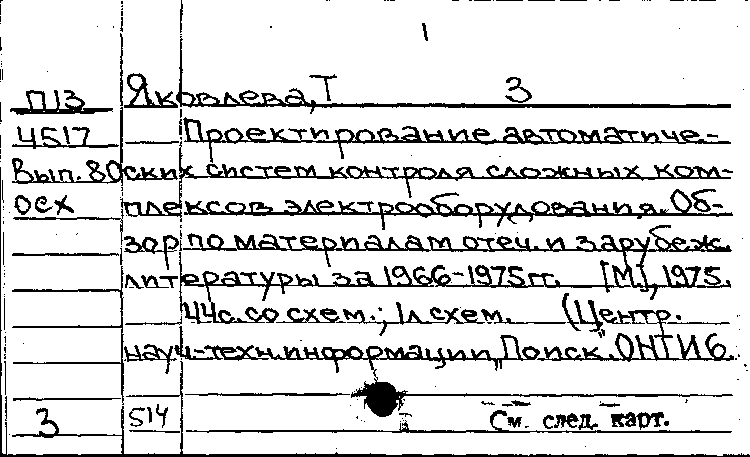 1
П13 Яковлева, Т 3
4517 Проектирование автоматиче-
Вып. 80 ских систем контроля сложных ком-
осх плексов электрооборудования. Об-
зор по материалам отеч. и зарубеж.
литературы за 1966-1975гг. [М.], 1975.
44с. со схем.; 1л схем. (Центр.
науч-техн. информации "Поиск". ОНТИ 6.
3 514 См. след. карт.